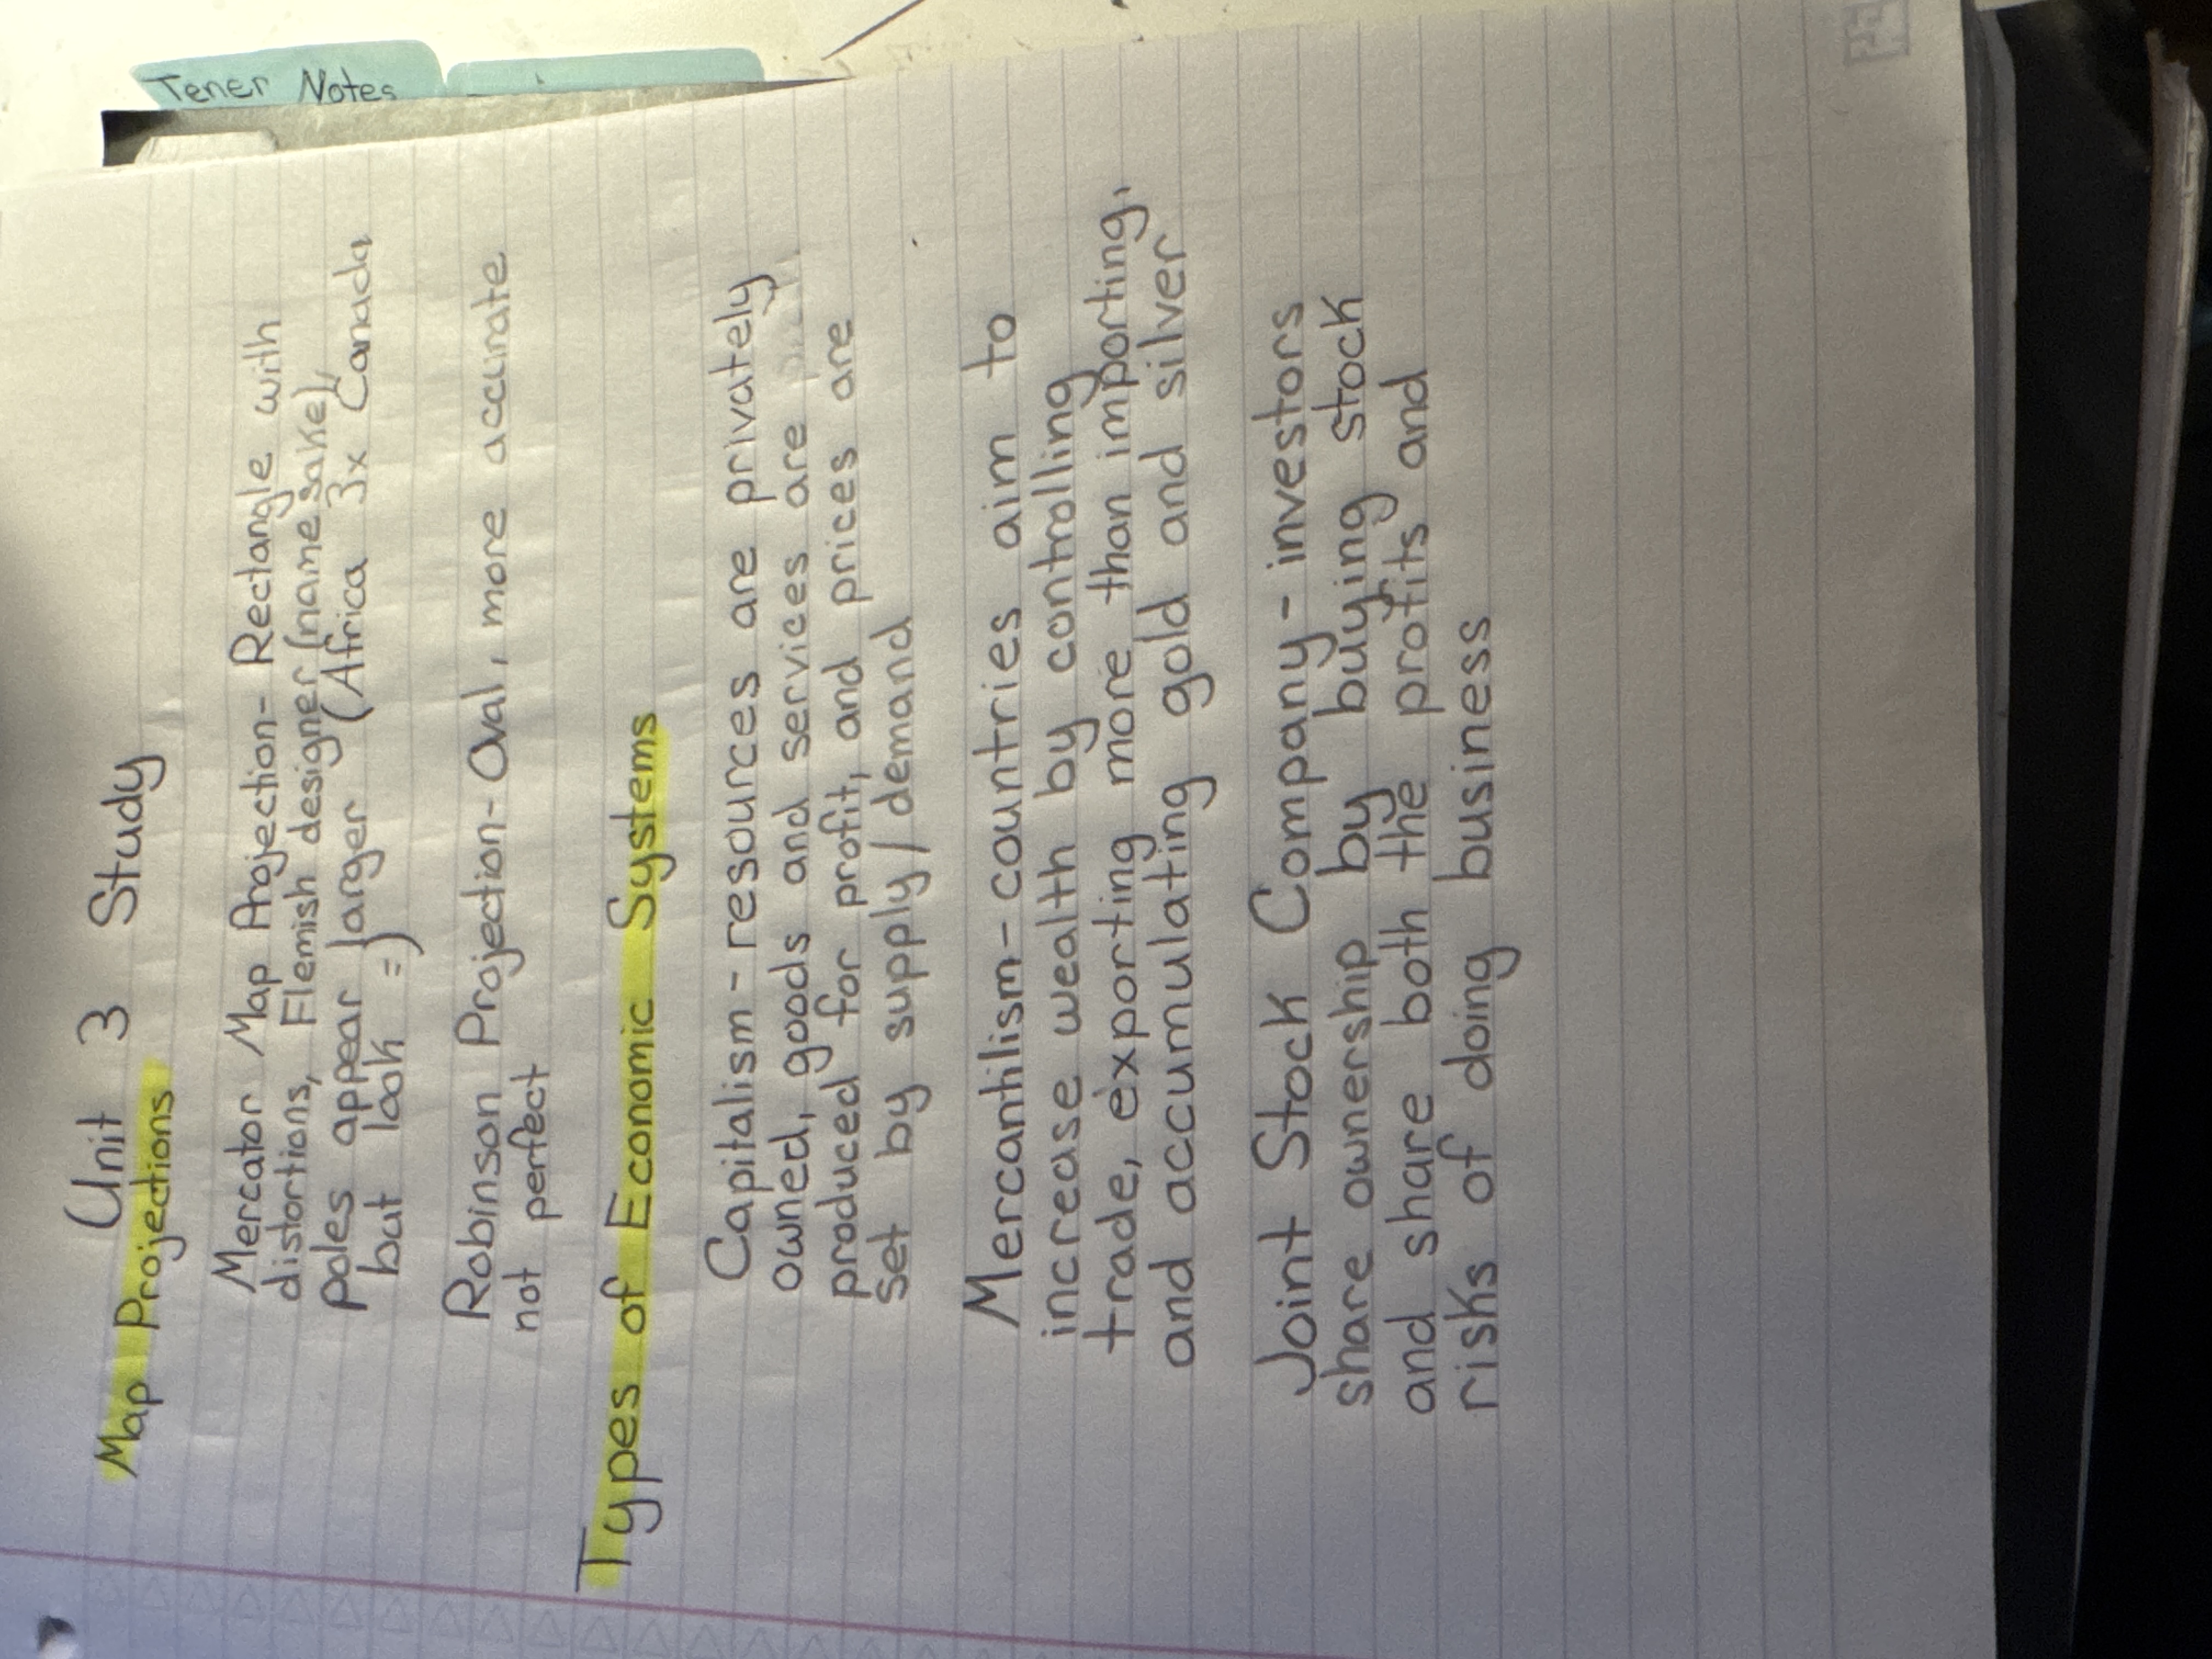 Tener Notes
Unit 3 Study
Map Projections
Mercator Map Projection- Rectangle with
distortions, Flemish designer (namesake),
poles appear larger (Africa 3x Canada
but look =)
Robinson Projection- Oval, more accurate
not perfect
Types of Economic Systems
Capitalism- resources are privately
owned, goods and services are
produced for profit, and prices are
set by supply/demand
Mercantilism- countries aim to
increase wealth by controlling
trade, exporting more than importing,
and accumulating gold and silver
Joint Stock Company- investors
share ownership by buying stock
and share both the profits and
risks of doing business